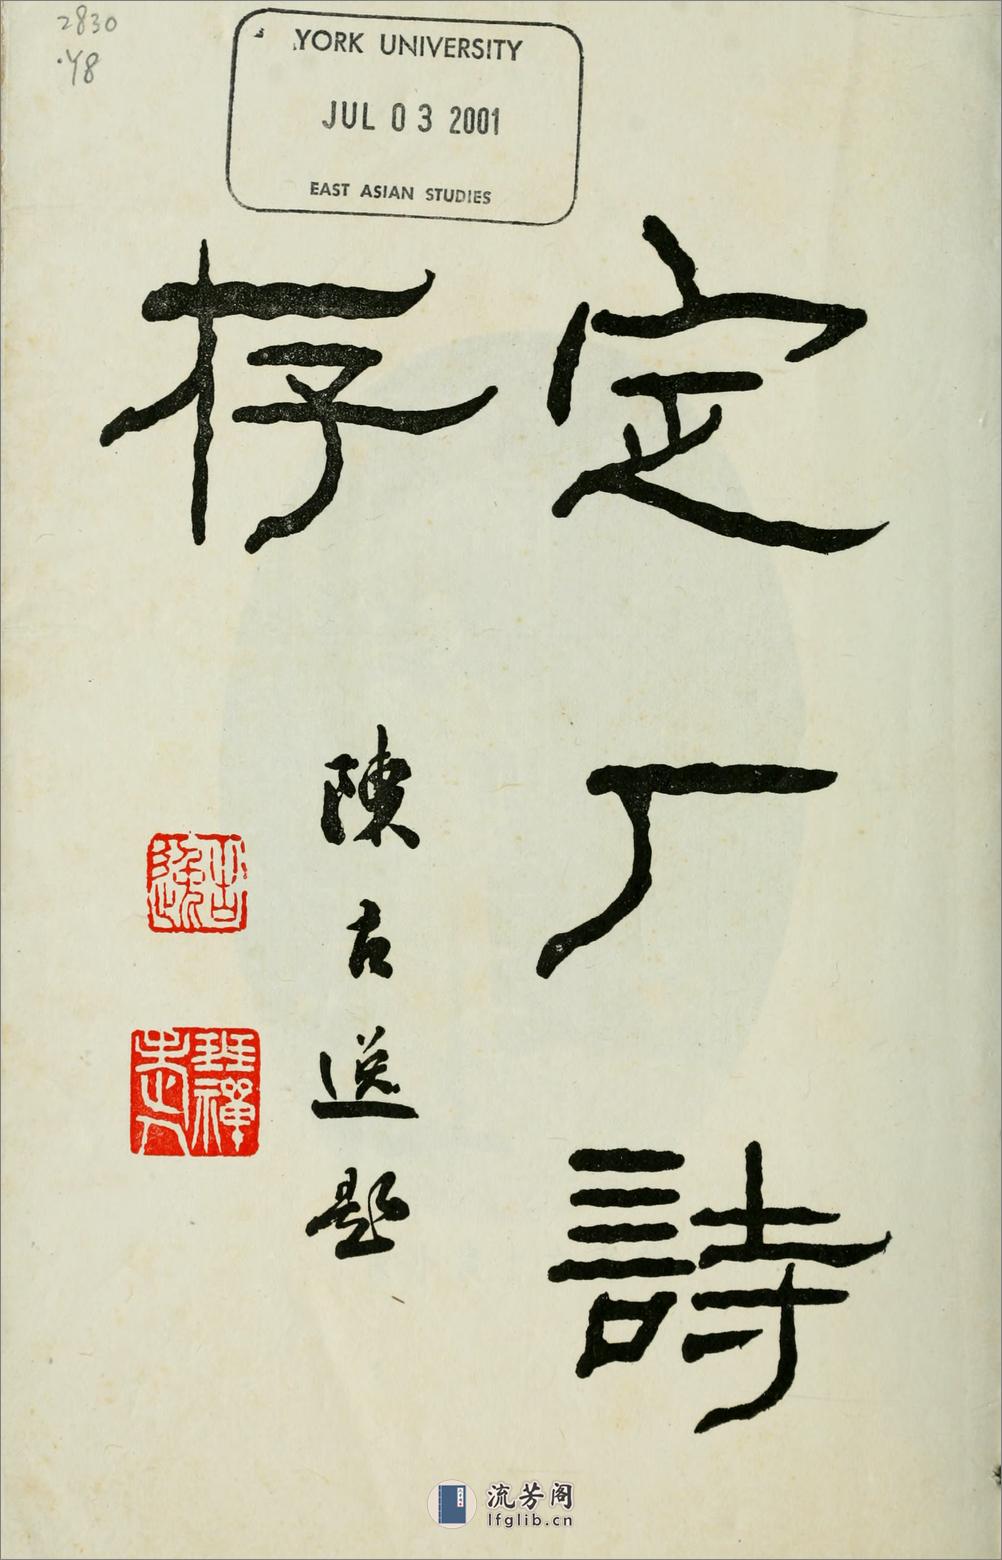 2830
.Y8
YORK UNIVERSITY
JUL 03 2001
EAST ASIAN STUDIES
定厂詩
存
陳古逸題
流芳阁
lfglib.cn